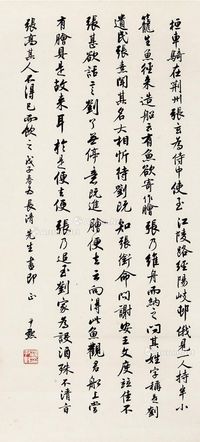 桓車騎在荊州張玄為侍中使至江陵路經陽岐邨俄見一人持半小
籠生魚徑來造船云有魚欲寄作膾張乃維舟而納之問其姓字稱是劉
遺民張素聞其名大相忻待劉既知張銜命問謝安王文度並佳不
張甚欲話言劉了無停意既進膾便去云向得此魚觀君船上當
有膾具是故來耳於是便去張乃追至劉家為設酒殊不清旨
張高其人不得已而飲之 戊子春為長清先生書即正 尹默